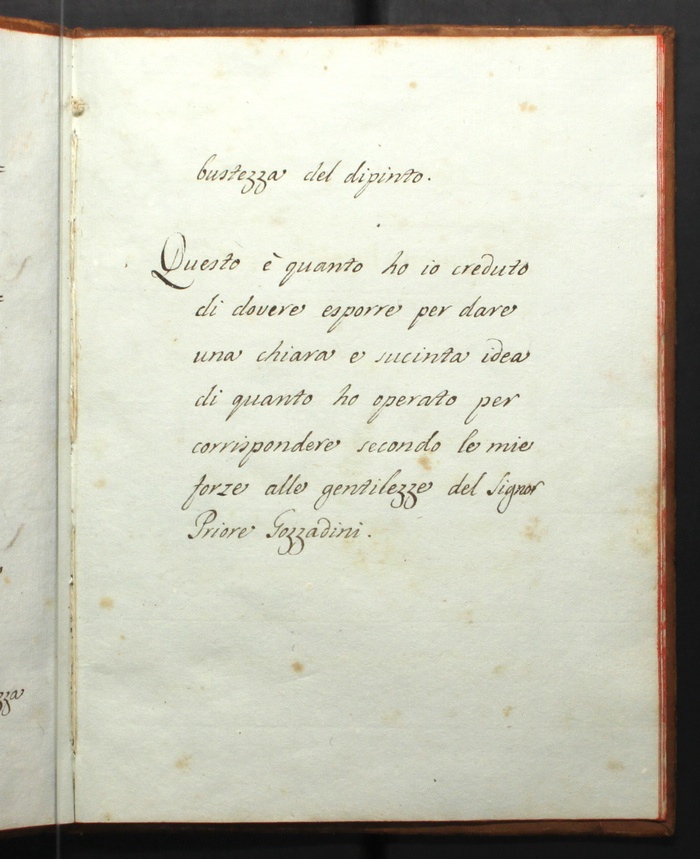 bustezza del dipinto.
Questo è quanto ho io creduto
di dovere esporre per dare
una chiara e sucinta idea
di quanto ho operato per
corrispondere secondo le mie
forze alle gentilezze del Signor
Priore Gozzadini.